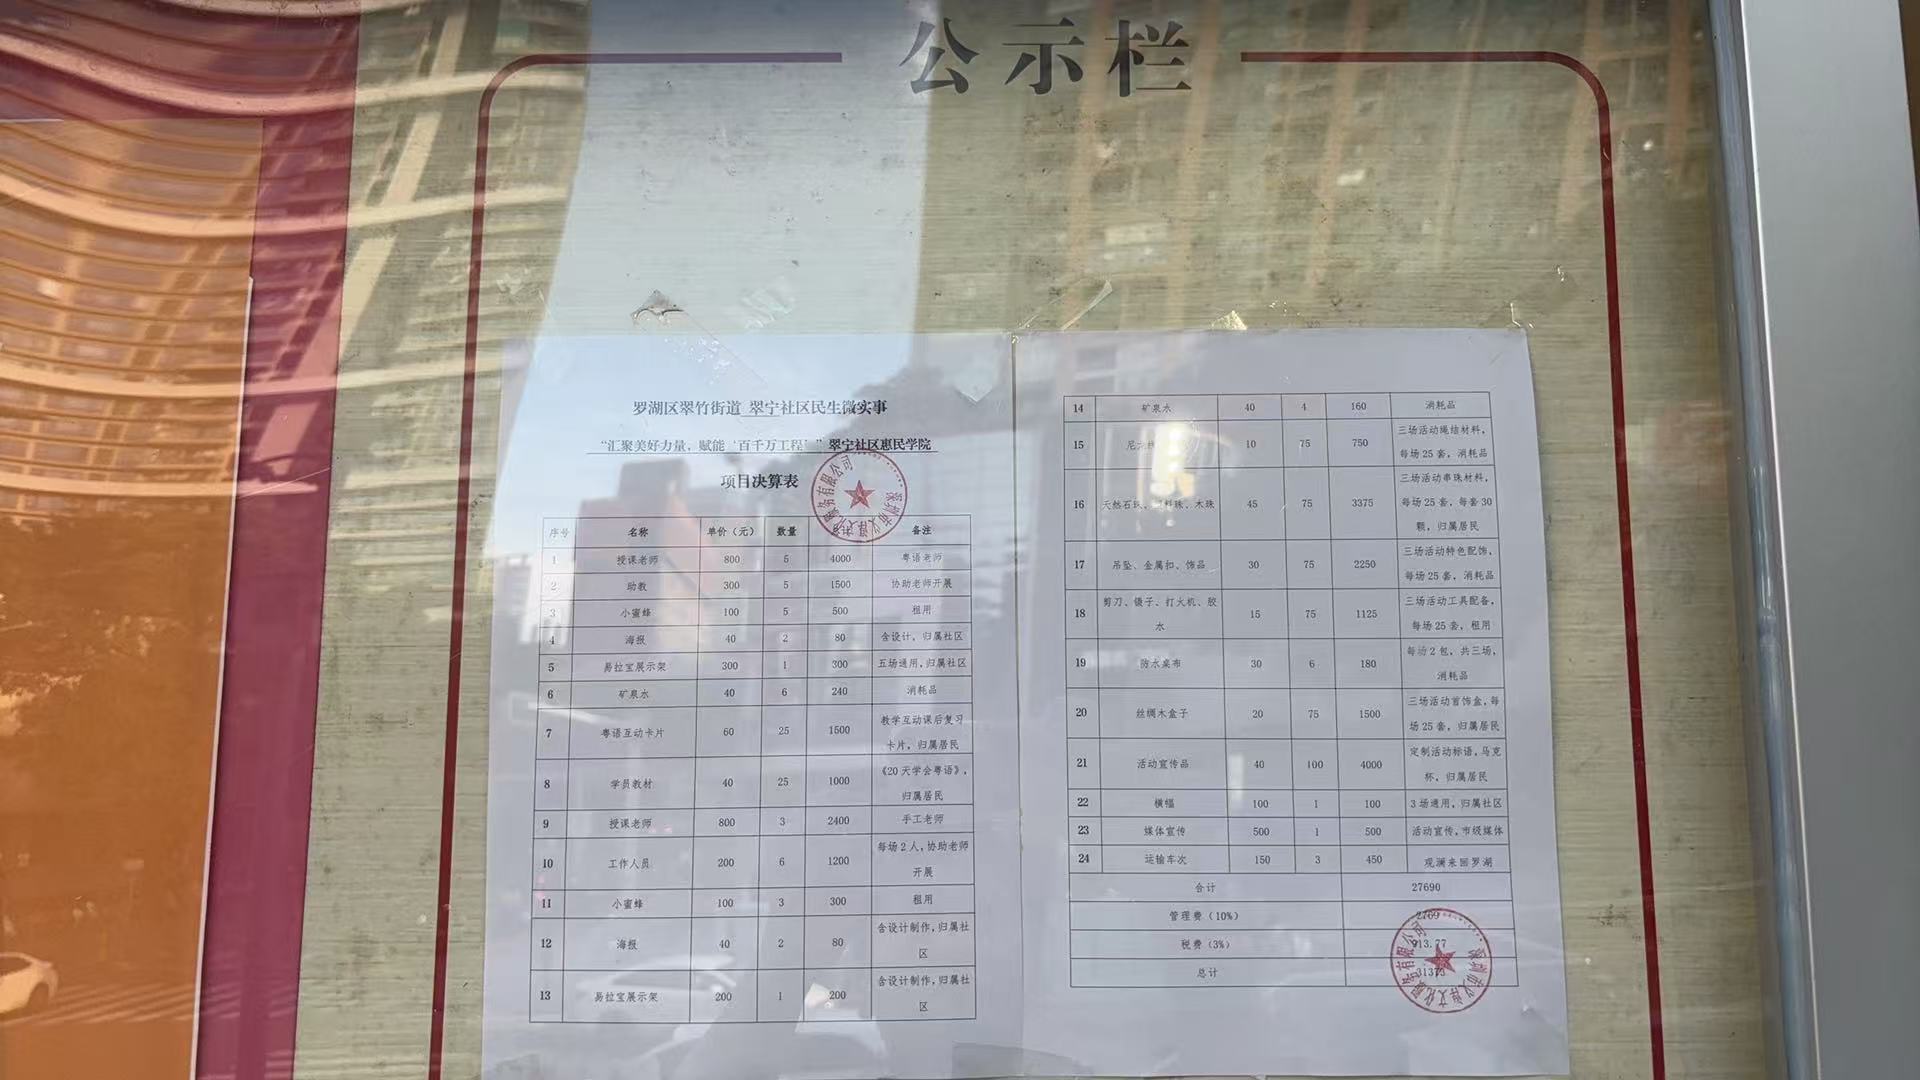 公示栏
罗湖区翠竹街道 翠宁社区民生微实事
“汇聚美好力量，赋能‘百千万工程’”翠宁社区惠民学院
项目决算表
序号 名称 单价（元） 数量 备注
1 授课老师 800 5 4000 粤语老师
2 助教 300 5 1500 协助老师开展
3 小蜜蜂 100 5 500 租用
4 海报 40 2 80 含设计，归属社区
5 易拉宝展示架 300 1 300 五场通用，归属社区
6 矿泉水 40 6 240 消耗品
7 粤语互动卡片 60 25 1500 教学互动课后复习
卡片，归属居民
8 学员教材 40 25 1000 《20天学会粤语》，
归属居民
9 授课老师 800 3 2400 手工老师
10 工作人员 200 6 1200 每场2人，协助老师
开展
11 小蜜蜂 100 3 300 租用
12 海报 40 2 80 含设计制作，归属社
区
13 易拉宝展示架 200 1 200 含设计制作，归属社
区
14 矿泉水 40 4 160 消耗品
15 尼 10 75 750 三场活动绳结材料，
每场25套，消耗品
16 天然石珠、料珠、木珠 45 75 3375 三场活动串珠材料，
每场25套，每套30
颗，归属居民
17 吊坠、金属扣、饰品 30 75 2250 三场活动特色配饰，
每场25套，消耗品
18 剪刀、镊子、打火机、胶
水 15 75 1125 三场活动工具配备，
每场25套，租用
19 防水桌布 30 6 180 每场2包，共三场，
消耗品
20 丝绸木盒子 20 75 1500 三场活动首饰盒，每
场25套，归属居民
21 活动宣传品 40 100 4000 定制活动标语，马克
杯，归属居民
22 横幅 100 1 100 3场通用，归属社区
23 媒体宣传 500 1 500 活动宣传，市级媒体
24 运输车次 150 3 450 观澜来回罗湖
合计 27690
管理费（10%） 2769
税费（3%） 913.77
总计 31373